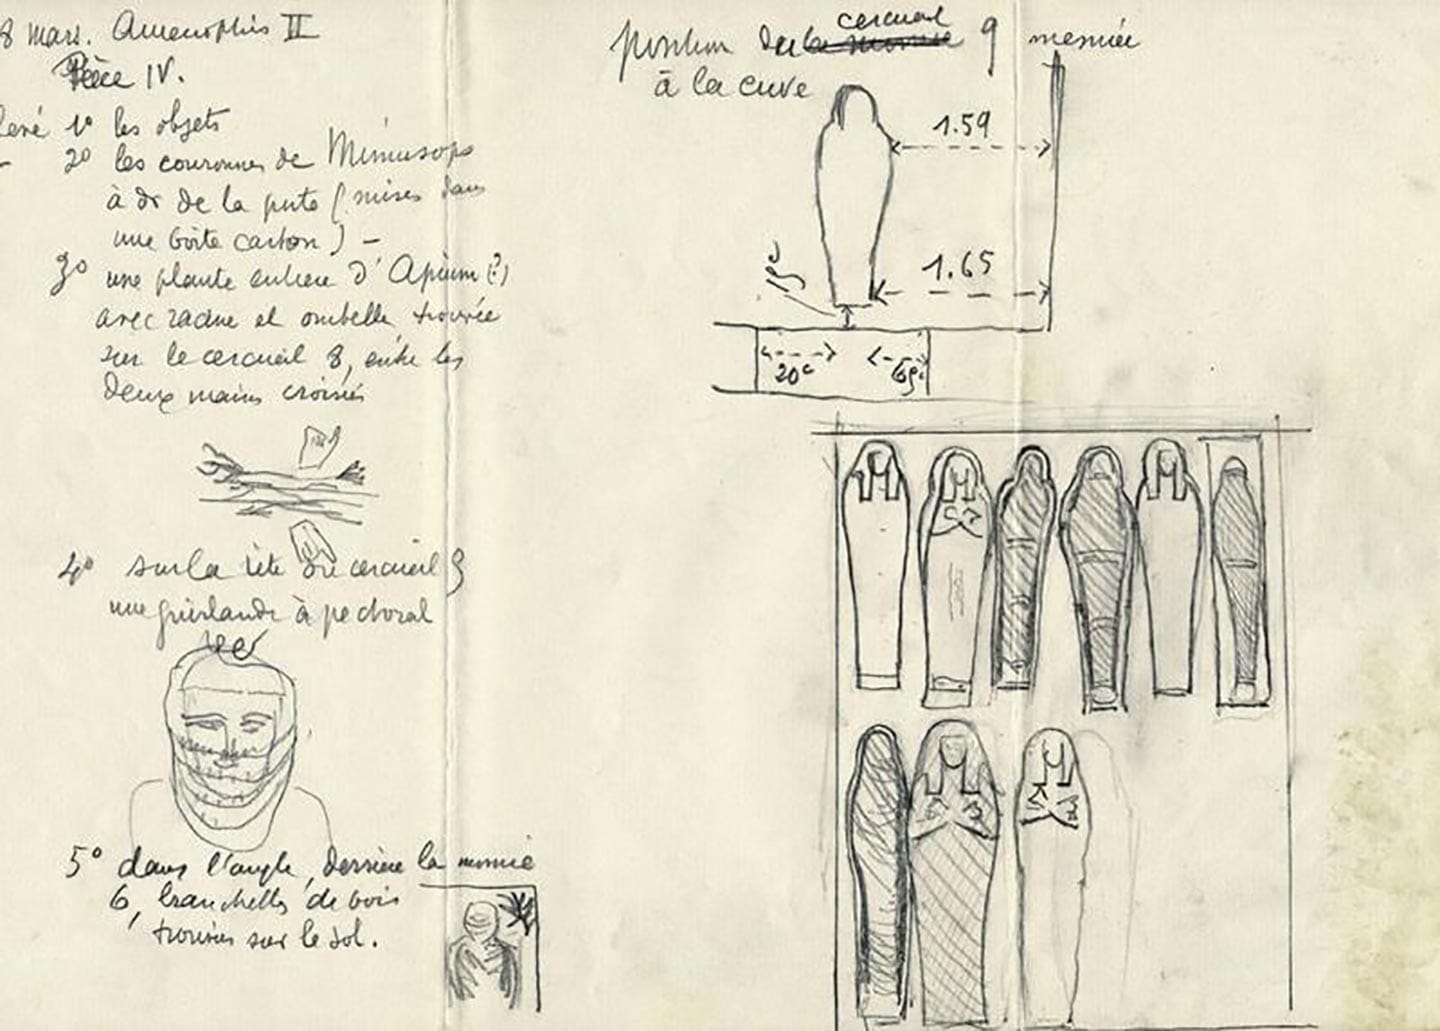 8 mars. Amenophis II
Pièce IV.
levé 1° les objets
2° les couronnes de Mimusops
à dr de la porte (mises dans
une boîte carton) –
3° une plante entière d'Apium (?)
avec racine et ombelle, trouvée
sur le cercueil 8, entre les
deux mains croisées
4° sur la tête du cercueil 9
une guirlande à pectoral
5° dans l'angle, derrière la momie
6, branchettes de bois
trouvées sur le sol.
position du cercueil 9
à la cuve
1.59
1.65
20c